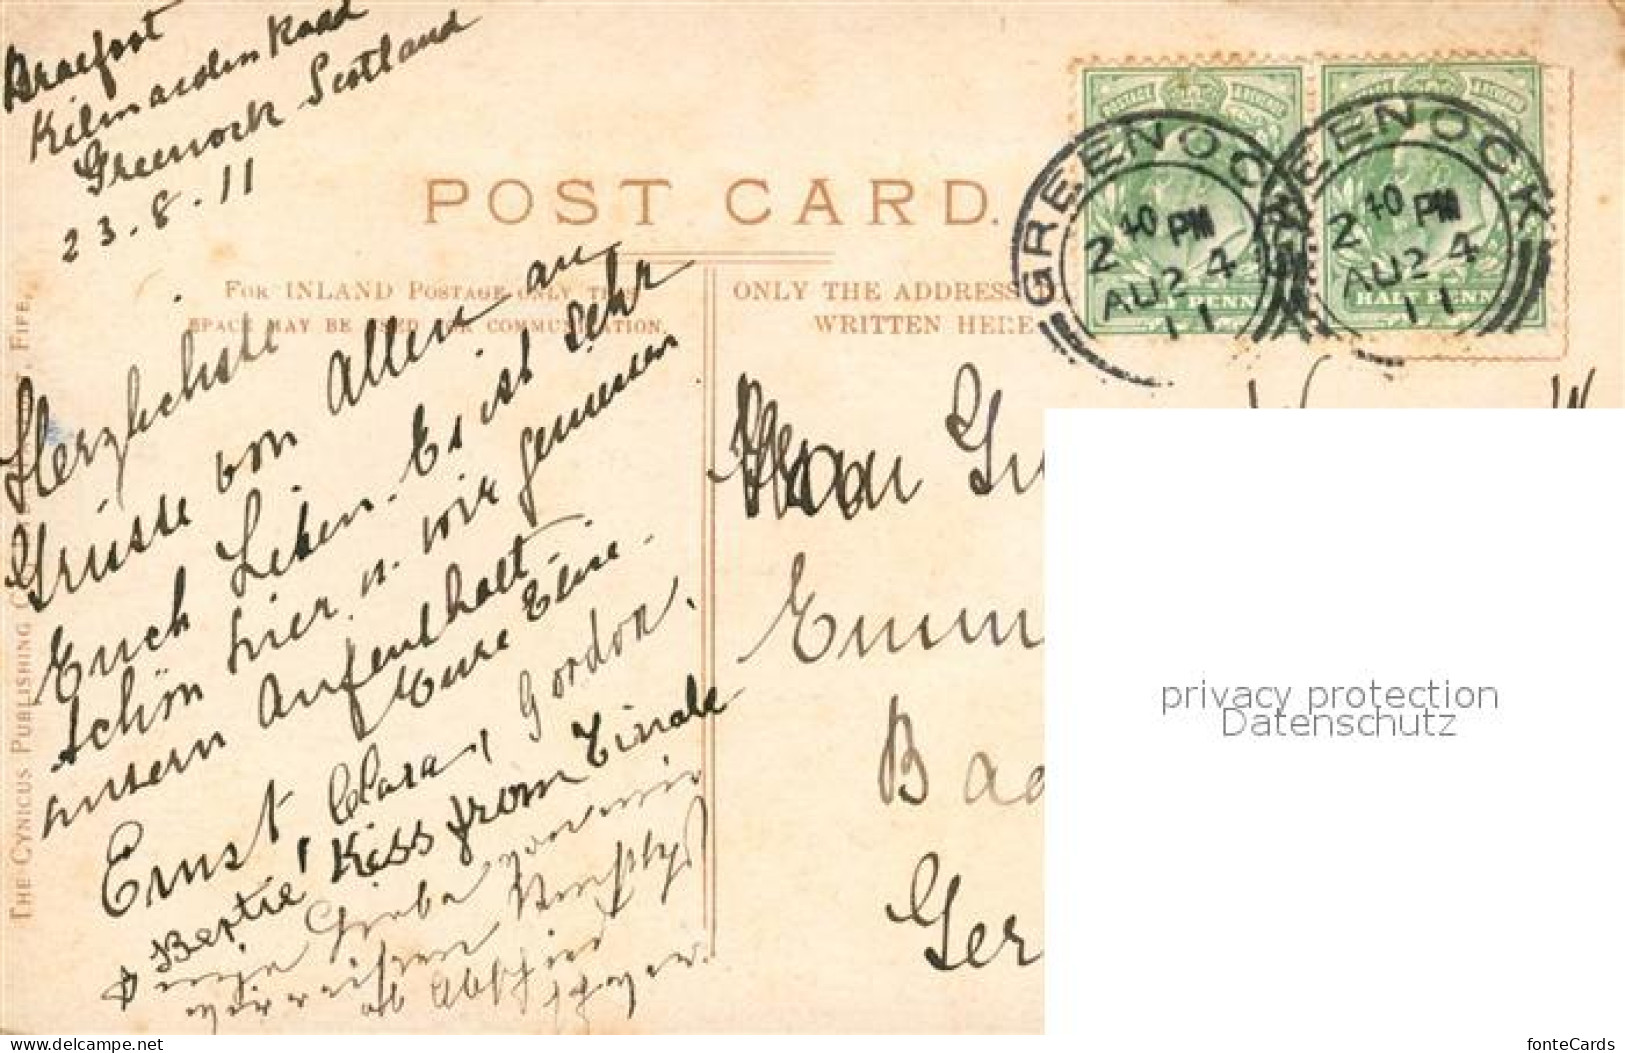 Braefoot
Kilmacolm Road
Greenock Scotland
23.8.11
POST CARD.
FOR INLAND POSTAGE ONLY THIS
SPACE MAY BE USED FOR COMMUNICATION.
ONLY THE ADDRESS
WRITTEN HERE
GREENOCK
2 40 PM
AU 24
11
GREENOCK
2 40 PM
AU 24
11
HALF PENNY
HALF PENN
Herzlichste
Grüsse von Allen an
Euch Lieben. Es ist sehr
schön hier u. wir geniessen
unsern Aufenthalt.
Eure Elise.
Ernst, Clara, Gordon.
Bertie, Kiss from
von mir
Abschied
THE CYNICUS PUBLISHING CO FIFE.
Frau
Emm
Bad
Ger
privacy protection
Datenschutz
www.delcampe.net
fonteCards